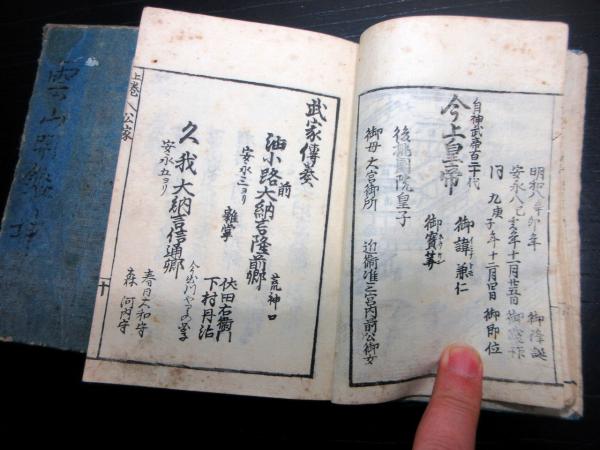 明和八年卯年 御降誕
安永八己亥年十一月廿五日 御践祚
同 九庚子年十二月四日 御即位
自神武帝百二十代
今上皇帝 御諱 兼仁
御寶算
後桃園院皇子
御母 大宮御所 近衛准三宮内前公御女
武家傳奏
油小路前大納言隆前卿 荒神口
安永三ヨリ
雜掌 伏田右衛門
下村丹治
久我大納言信通卿
安永五ヨリ
春日大和守
森 河内守
上巻
公家
十
雲山